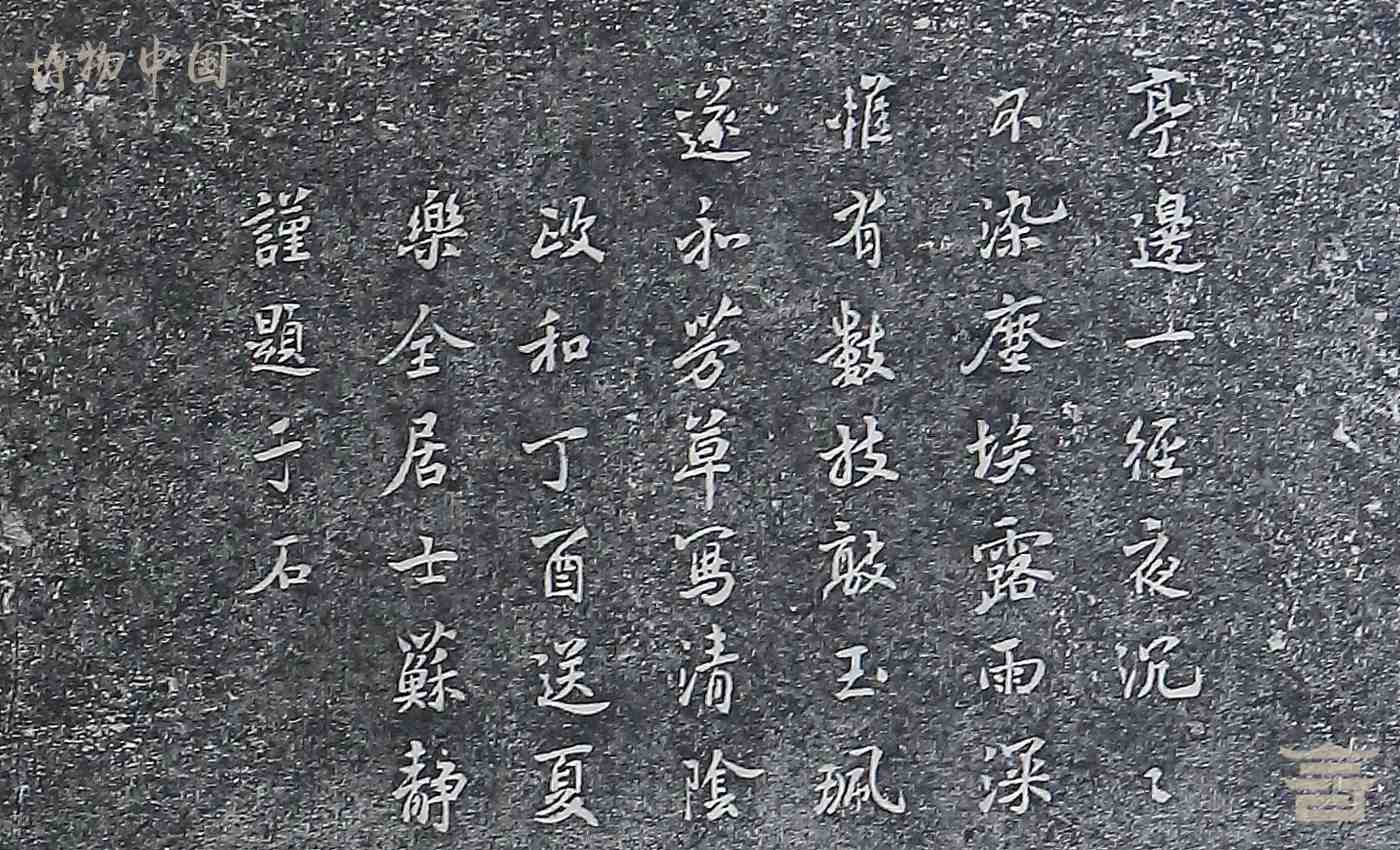 博物中国
亭邊一徑夜沉〻
不染塵埃露雨深
惟有數枝敲玉珮
遂和芳草寫清陰
政和丁酉送夏
樂全居士蘇靜
謹題于石